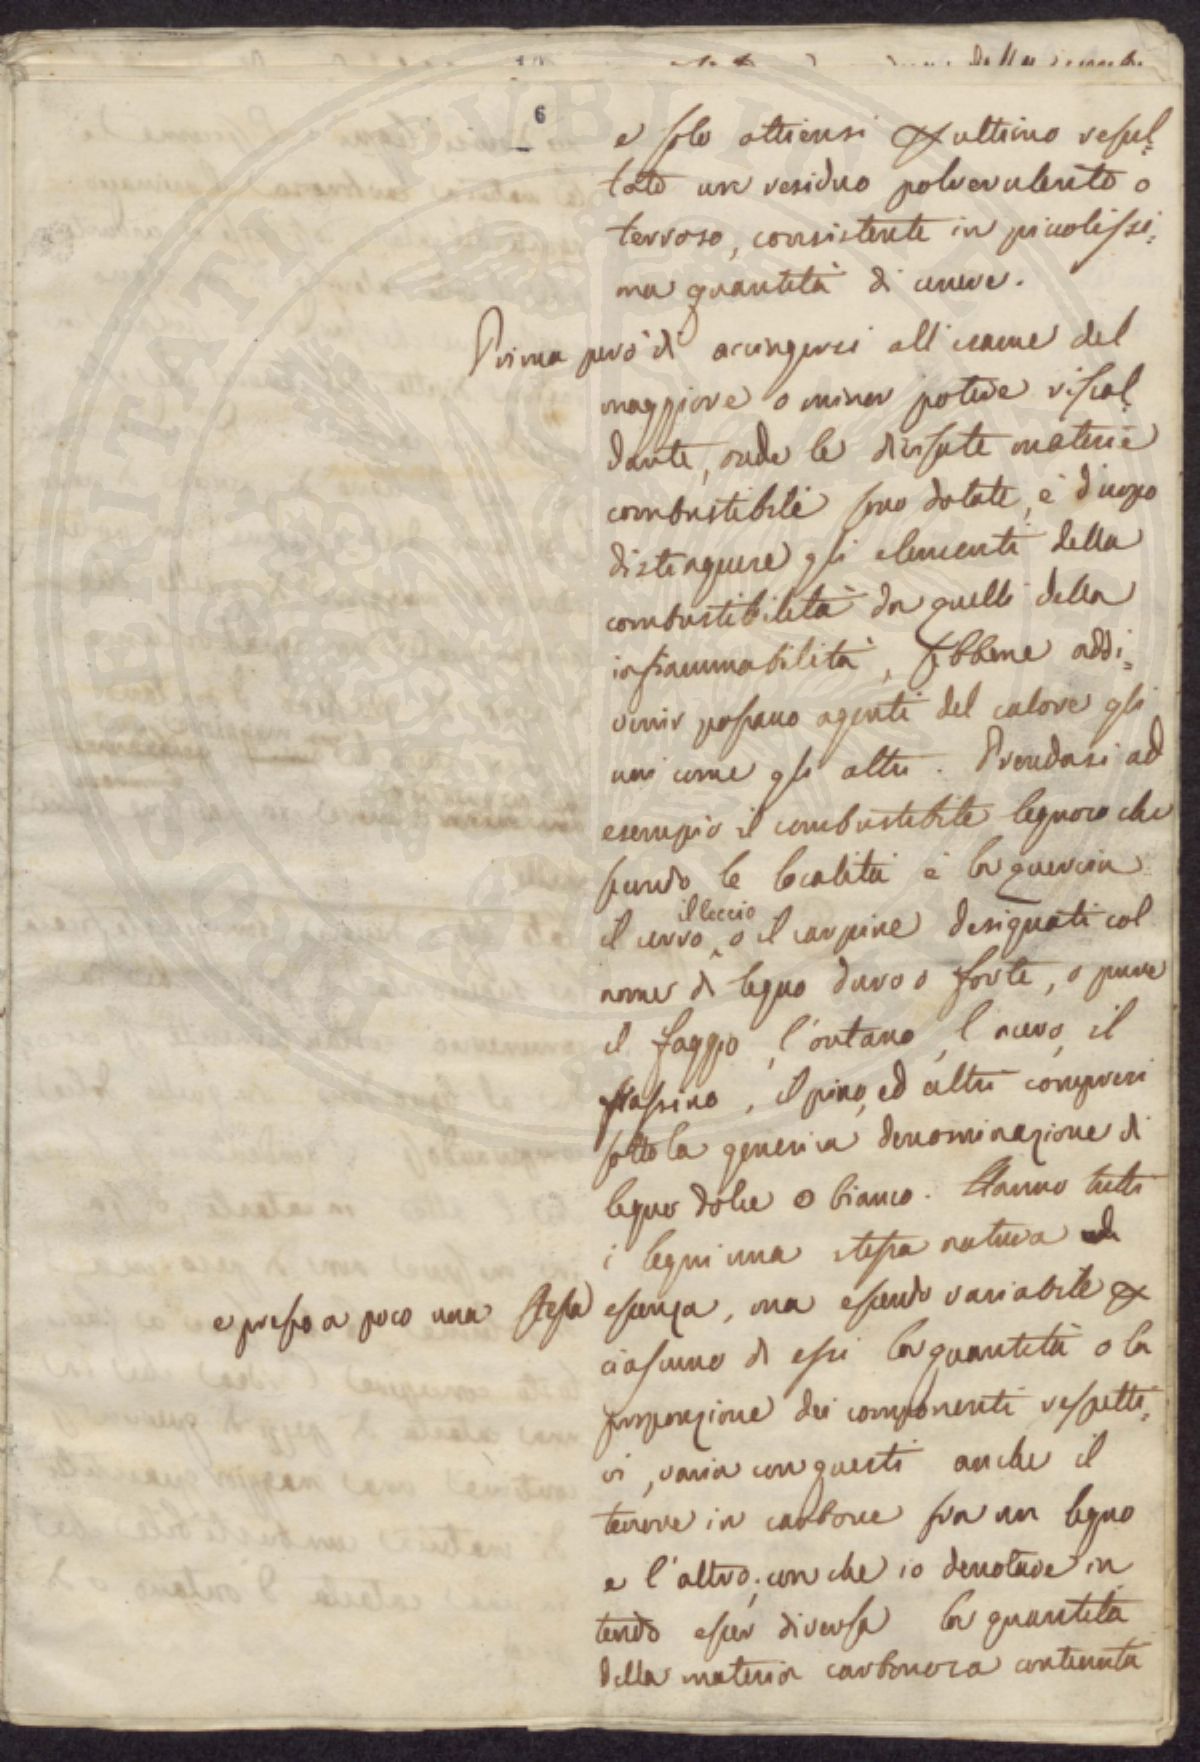 6
e solo ottiensi p ultimo resul=
tato un residuo polverulento o
terroso, consistente in piccolissi=
ma quantità di cenere.
Prima però di accingersi all'esame del
maggiore o minor potere riscal=
dante, onde le divisate materie
combustibili sono dotate, è d'uopo
distinguere gli elementi della
combustibilità da quelli della
infiammabilità, sebbene addi=
venir possano agenti del calore gli
uni come gli altri. Prendasi ad
esempio il combustibile legnoso che
secondo le località è la quercia
il cerro, il leccio o il carpine designati col
nome di legno duro o forte, o pure
il faggio, l'ontano, l'acero, il
frassino, il pino, ed altri compresi
sotto la generica denominazione di
legno dolce o bianco. Hanno tutti
i legni una stessa natura
e presso a poco una stessa essenza, ma essendo variabile p
ciascuno di essi la quantità o la
proporzione dei componenti rispetti=
vi, varia con questi anche il
tenore in carbone fra un legno
e l'altro; con che io denotare in
tendo esser diversa la quantità
della materia carbonosa contenuta